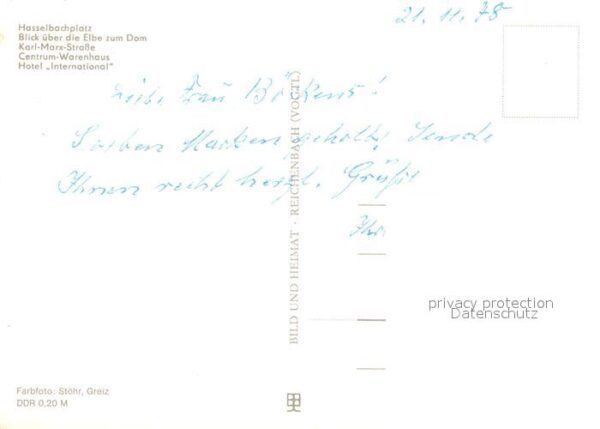 Hasselbachplatz
Blick über die Elbe zum Dom
Karl-Marx-Straße
Centrum-Warenhaus
Hotel „International"
21. 11. 78
Liebe Frau !
Soeben Marken geholt, sende
Ihnen recht herzl. Grüße
Ihr.
BILD UND HEIMAT · REICHENBACH (VOGTL)
privacy protection
Datenschutz
Farbfoto: Stöhr, Greiz
DDR 0.20 M